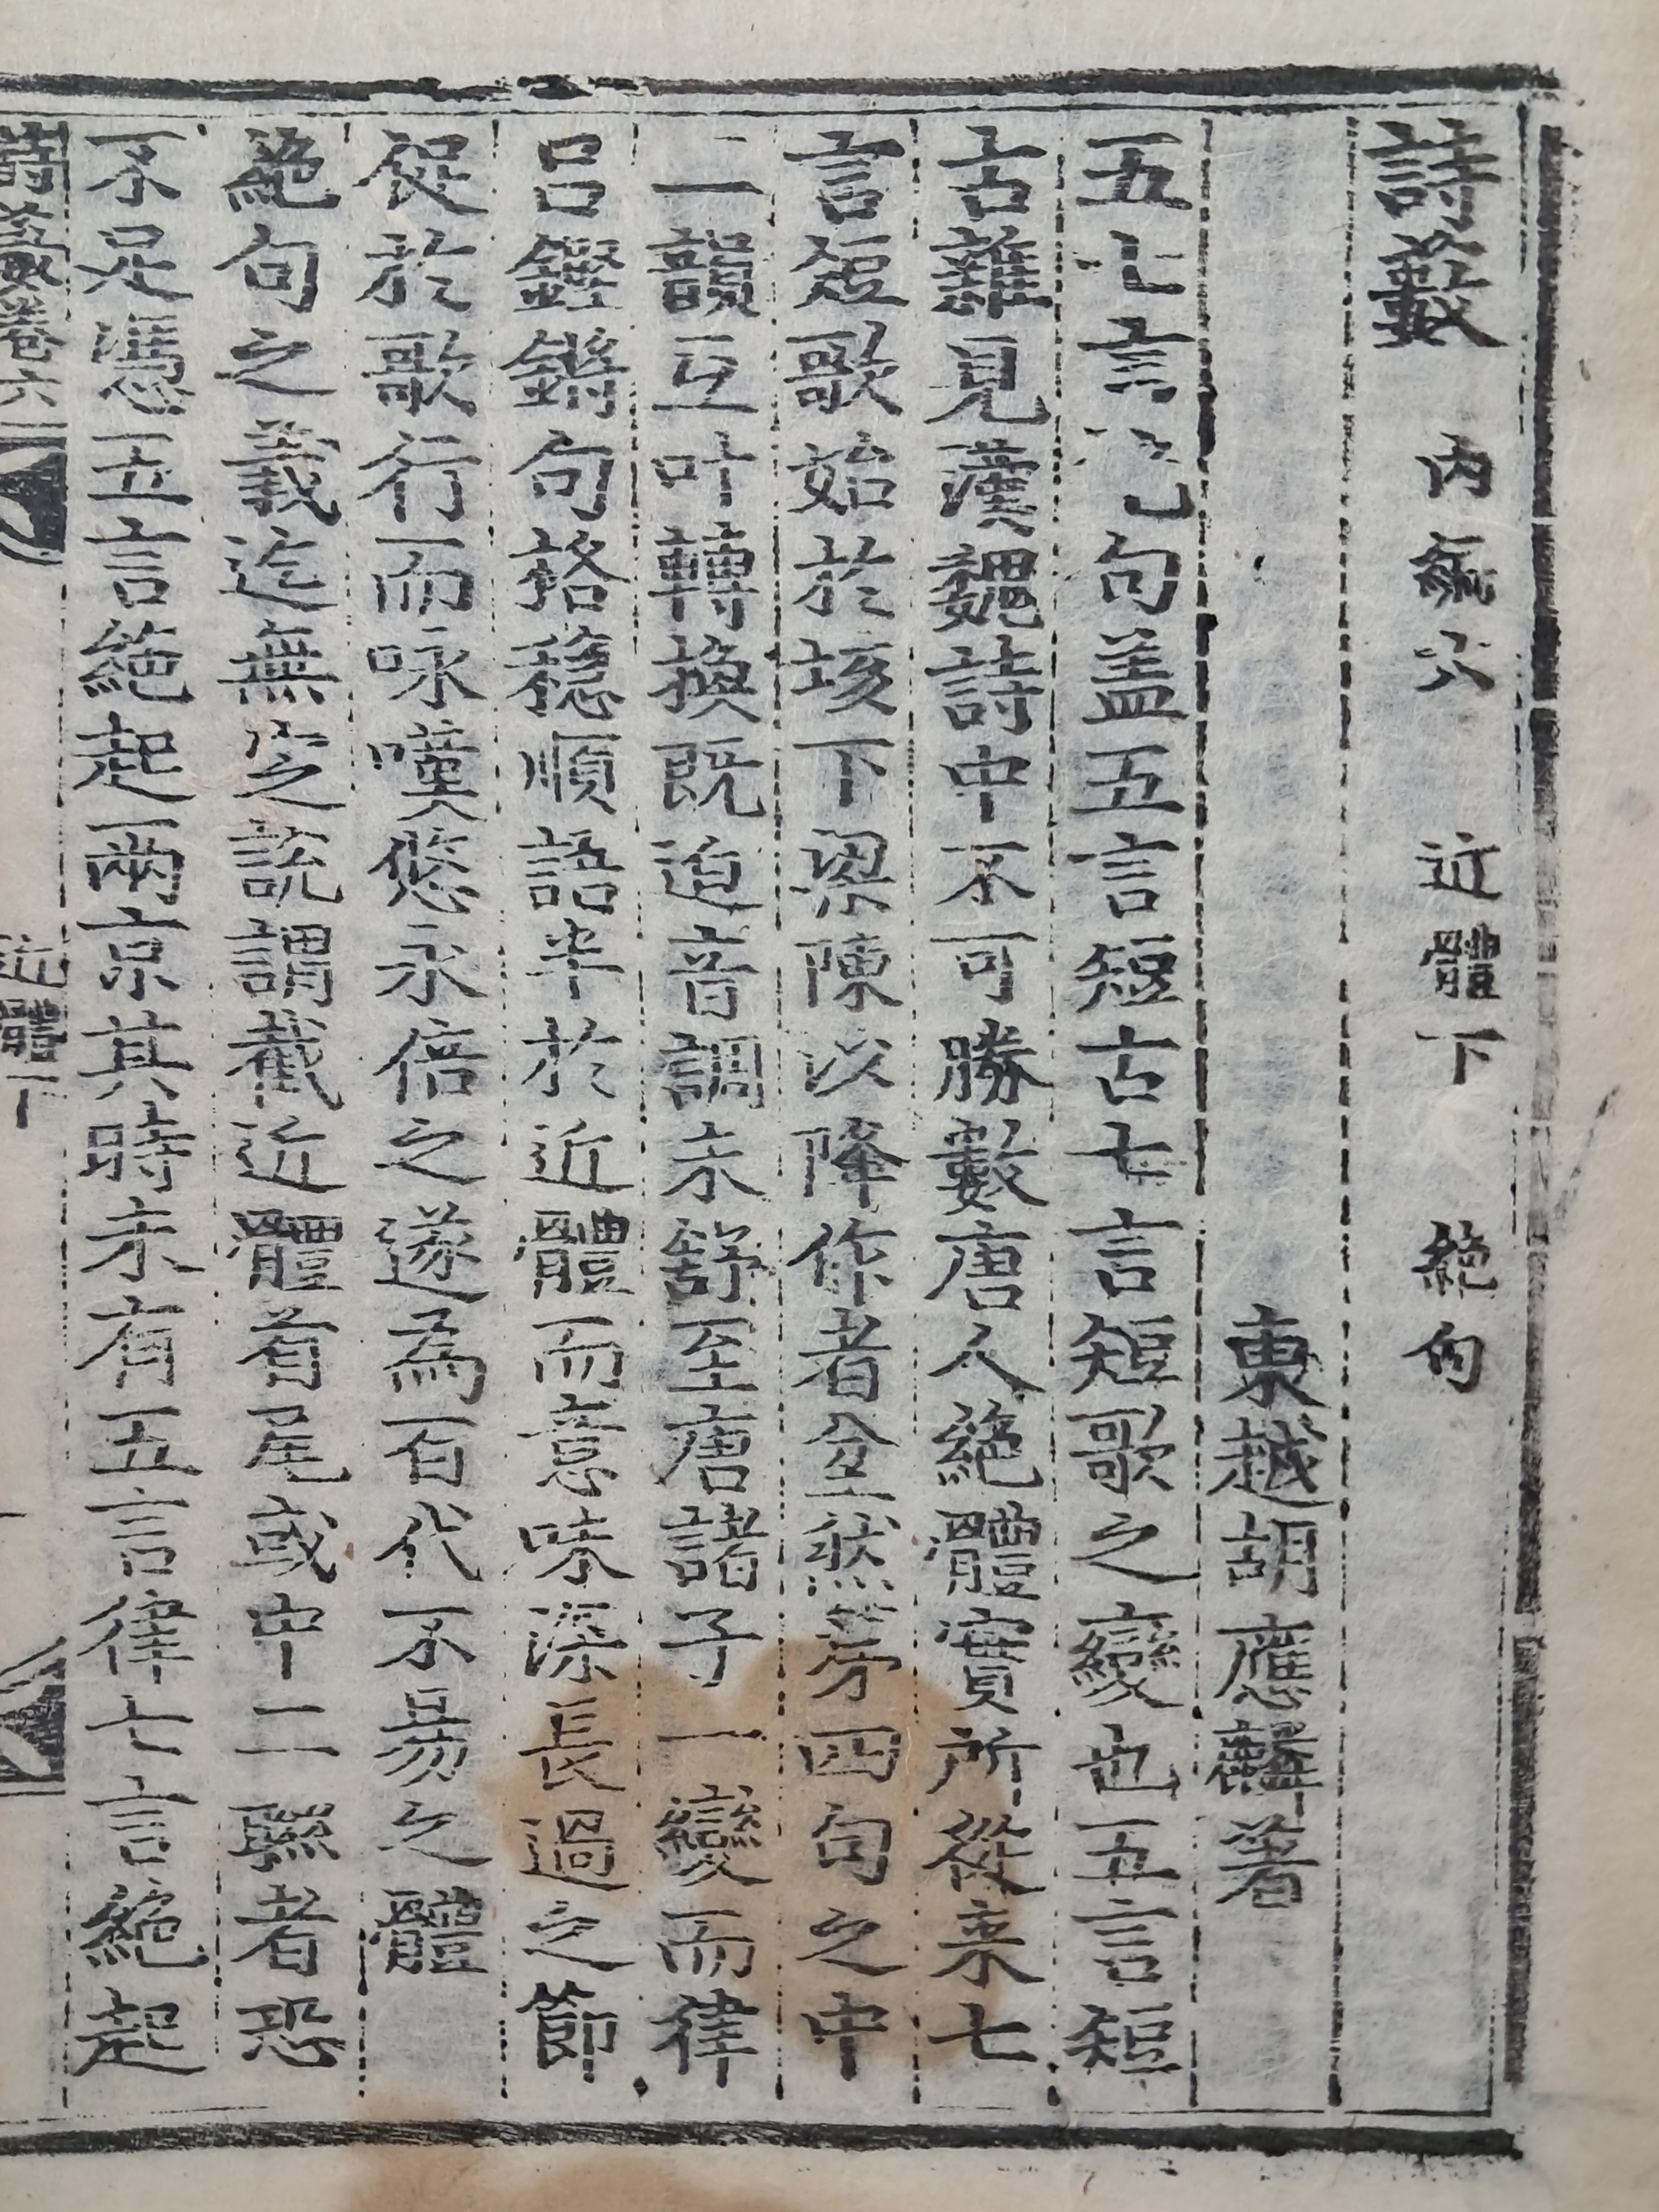 詩藪　内編六　近體下　絶句
東越胡應麟著
五七言絶句盖五言短古七言短歌之變也五言短
古雜見漢魏詩中不可勝數唐人絶體實所從来七
言短歌始於垓下梁陳以降作者坌然苐四句之中
二韻互叶轉換既迫音調未舒至唐諸子一變而律
呂鏗鏘句格穩順語半於近體而意味深長過之節
促於歌行而咏嘆悠永倍之遂爲百代不易之體
絶句之義迄無定說謂截近體首尾或中二聯者恐
不足憑五言絶起兩京其時未有五言律七言絶起
詩藪卷六　近體下　一